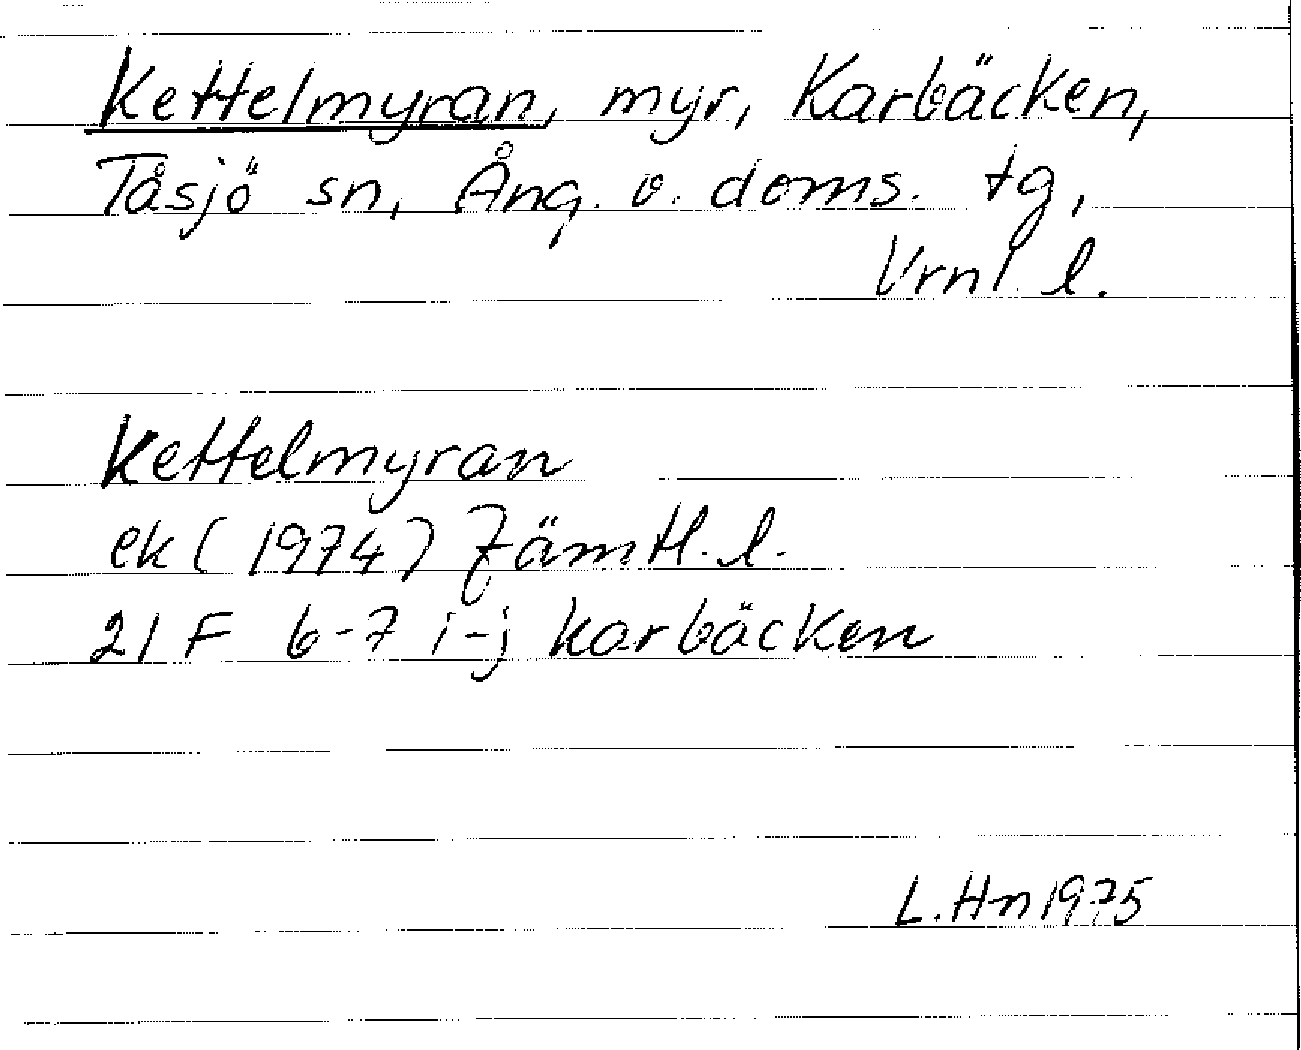 Kettelmyran, myr, Karbäcken,
Tåsjö sn, Ång. v. doms. tg,
Vrnl. l.
Kettelmyran
ek (1974) Jämtl. l.
21 F 6-7 i-j Karbäcken
L. Hn 1975